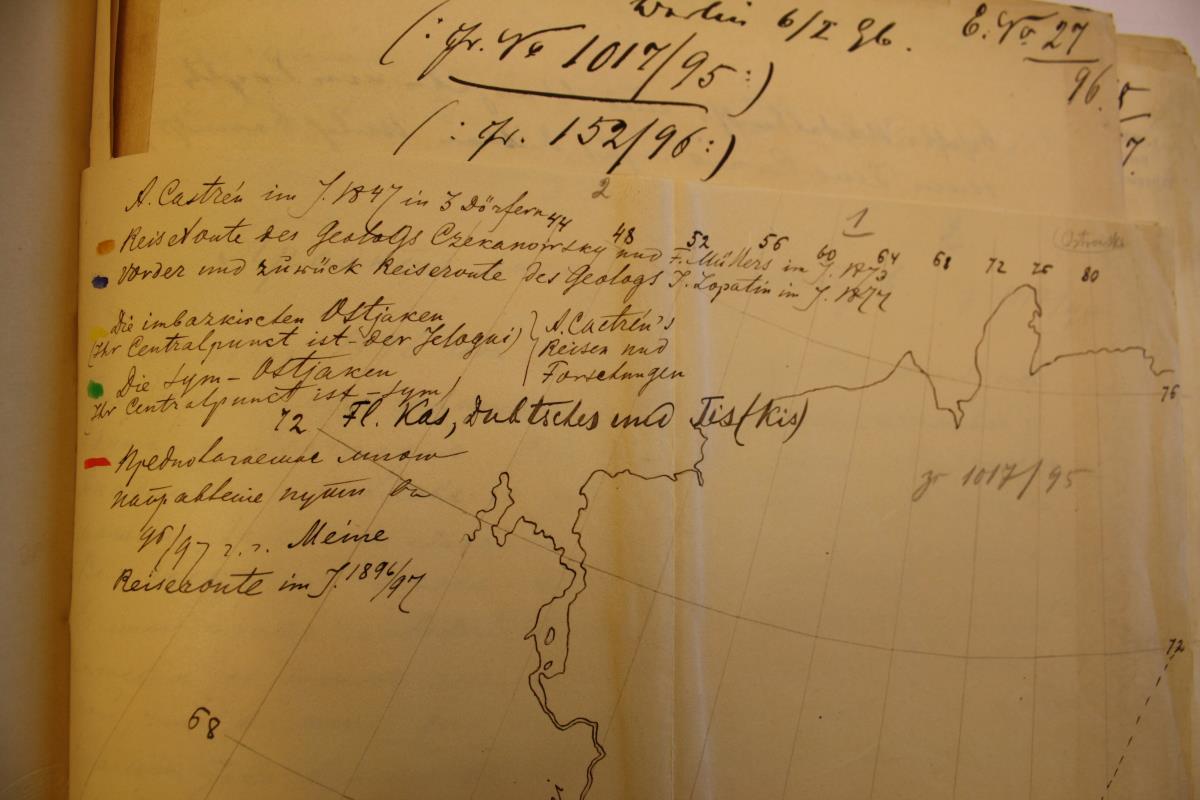 Berlin 6/I 96. E. No 27
96.
(: Jr. No 1017/95 :)
(: Jr. 152/96 :)
2
1
A. Castrén im J. 1847 in 3 Dörfern
44 48 52 56 60 64 68 72 76 80
Reiseroute des Geologs Czekanowsky und F. Müllers im J. 1873
Vorder und zurück Reiseroute des Geologs J. Lopatin im J. 1877
Die imbazkischen Ostjaken
(Ihr Centralpunct ist der Jelogui)
A. Castrén's
Reisen und
Forschungen
Die Sym-Ostjaken
Ihr Centralpunct ist - Sym)
76
72 Fl. Kas, Dubtsches und Tis (Kis)
Предполагаемое мною
направление пути въ
96/97 г.г. Meine
Reiseroute im J. 1896/97
1017/95
72
68